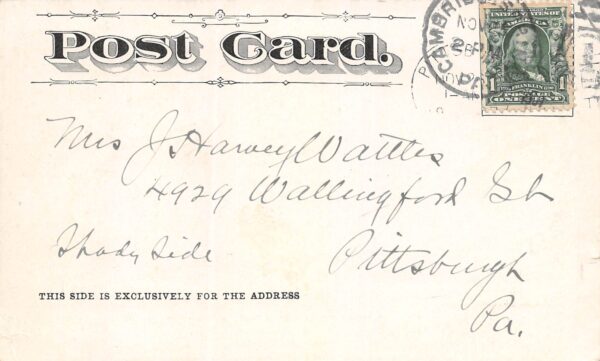 Post Card.
CAMBRI
NOV
PA.
UNITED STATES OF
1 FRANKLIN 1
POSTAGE
ONE CENT
Mrs J Harvey Wattles
4929 Wallingford St
Shady Side
Pittsburgh
Pa.
THIS SIDE IS EXCLUSIVELY FOR THE ADDRESS